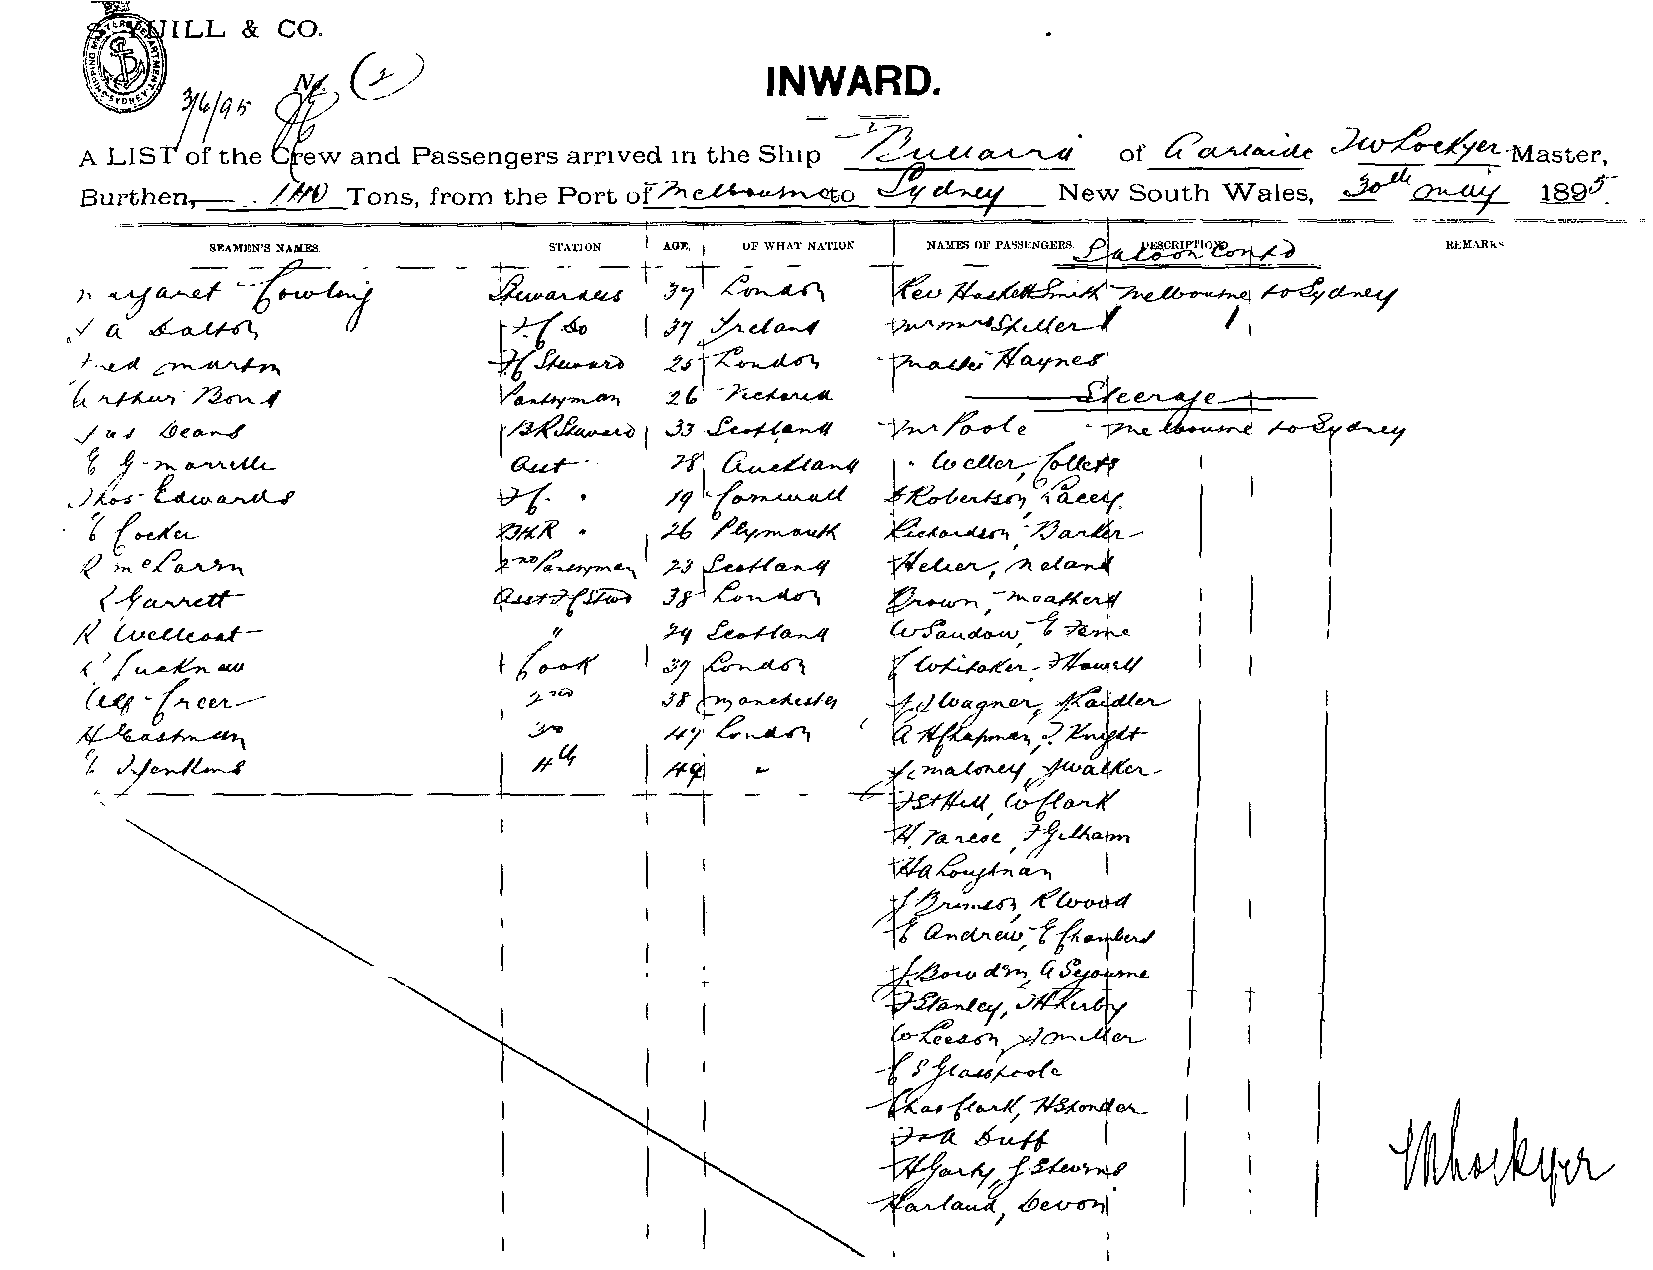 YUILL & CO.
3/6/95 (2)
INWARD.
A LIST of the Crew and Passengers arrived in the Ship Bullarra of Adelaide T W Lockyer Master,
Burthen, Tons, from the Port of Melbourne to Sydney New South Wales, 30th May 1895.
SEAMEN'S NAMES. STATION AGE. OF WHAT NATION NAMES OF PASSENGERS. DESCRIPTION REMARKS
Saloon Contd
Margaret Cowling Stewardess 37 London Rev Haskett Smith Melbourne to Sydney
A Dalton F C Do 37 Ireland Mr Mrs Shiller
Fred Martin F C Steward 25 London Master Haynes
Arthur Bond Pantryman 26 Victoria Steerage
Jas Deans B R Steward 33 Scotland Mr Poole Melbourne to Sydney
E G Morrelle Asst 28 Auckland " Weller, Colletts
Thos Edwards F C " 19 Cornwall Robertson, Lacey
E Cocker " 26 Plymouth Richardson, Barker
R McLaren 2nd Pantryman 23 Scotland Helier, Noland
Garrett Asst F C Stwd 38 London Brown, Moathers
R Wellcoat " 29 Scotland W Sandow, E Ferne
Lucknaw Cook 39 London C Whitaker, F Howell
Alf Greer 2nd 38 Manchester J J Wagner, Kaidler
H Eastman 3rd 47 London A H Chapman, J Knight
Jenkins 4th 49 " J Maloney, J Walker
F St Hill, W Clark
H. Varcoe, F Gilham
H A Loughnan
J Brimson, R Wood
E Andrew, E Chambers
J. Bowden, A Sejourne
F Stanley, F H Kirby
W Leeson, Miller
C S Glasspoole
Chas Clark, H Stonder
F A Duff
H Garty, J Stevens
Harland, Devon
T W Lockyer